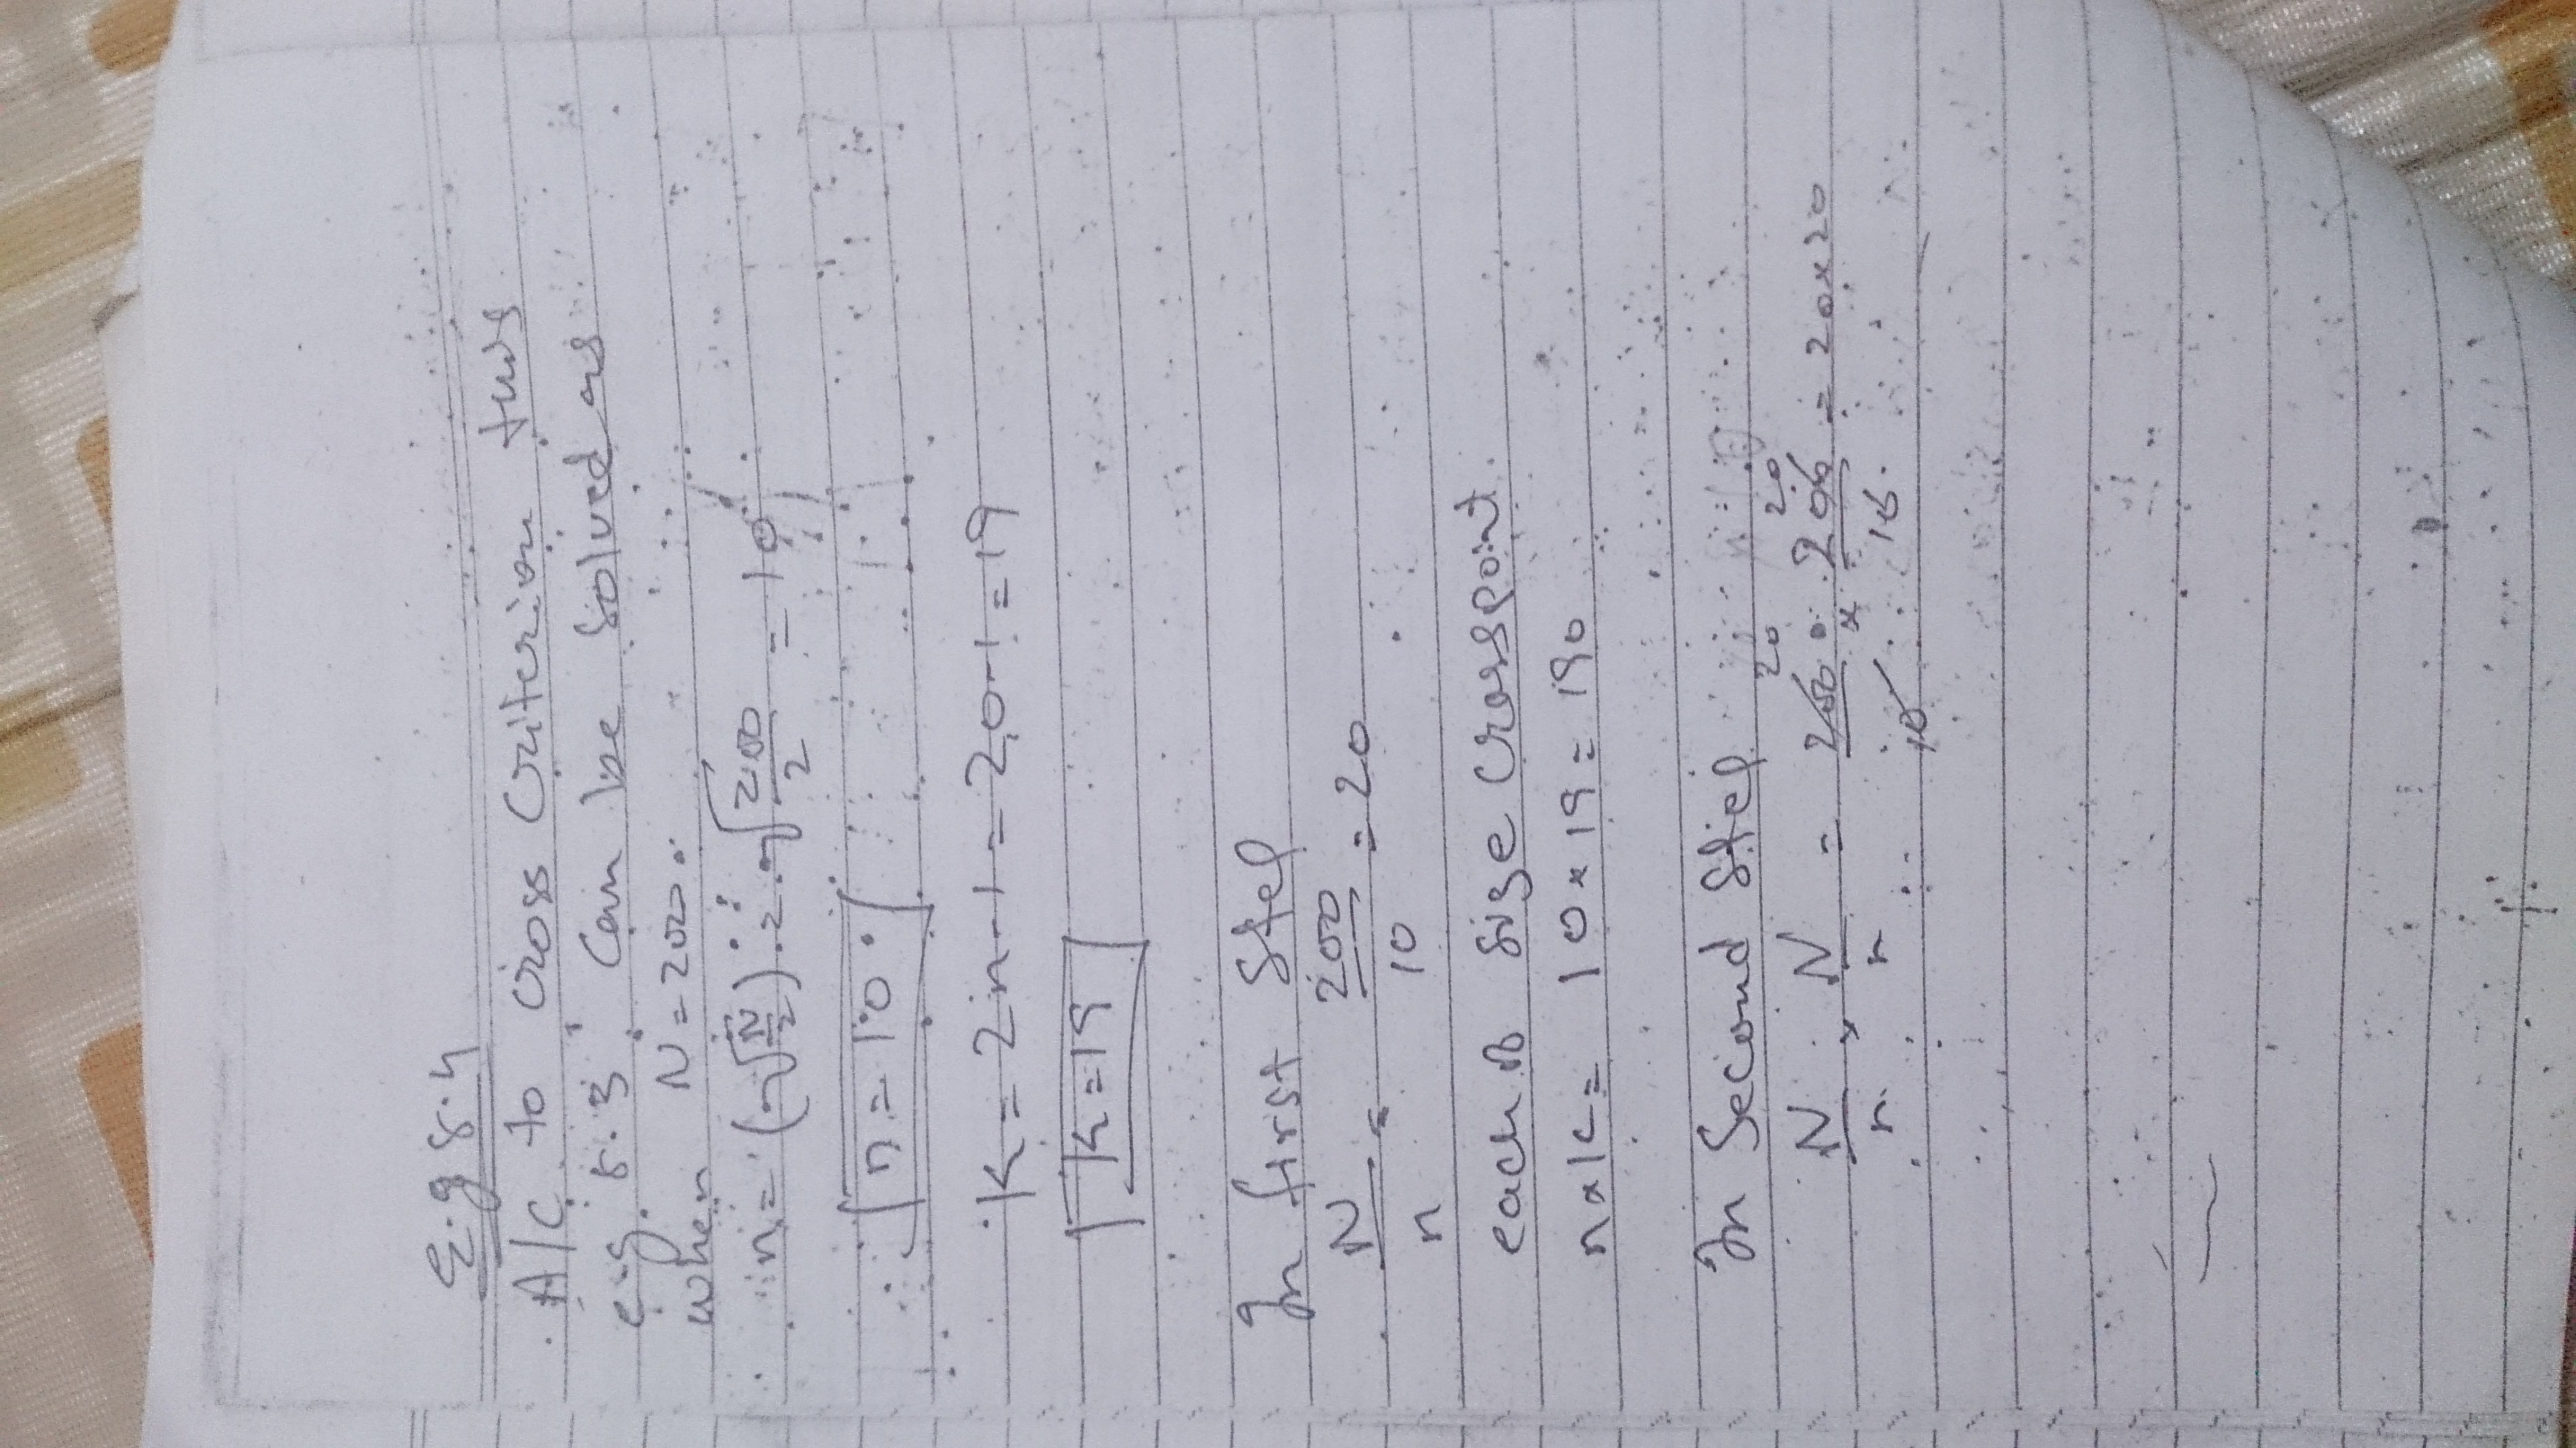 E.g 8.4
A/C to cross criterion tws
e.g. 8.3 Can be solved as
when N = 200
n = (√N/2) = √200/2 = 10
n = 10
K = 2n-1 = 20-1 = 19
K = 19
In first step
N/n = 200/10 = 20
each is size crosspoint
n x k = 10 x 19 = 190
In Second step
N/n x N/n = 200/10 x 200/10 = 20x20